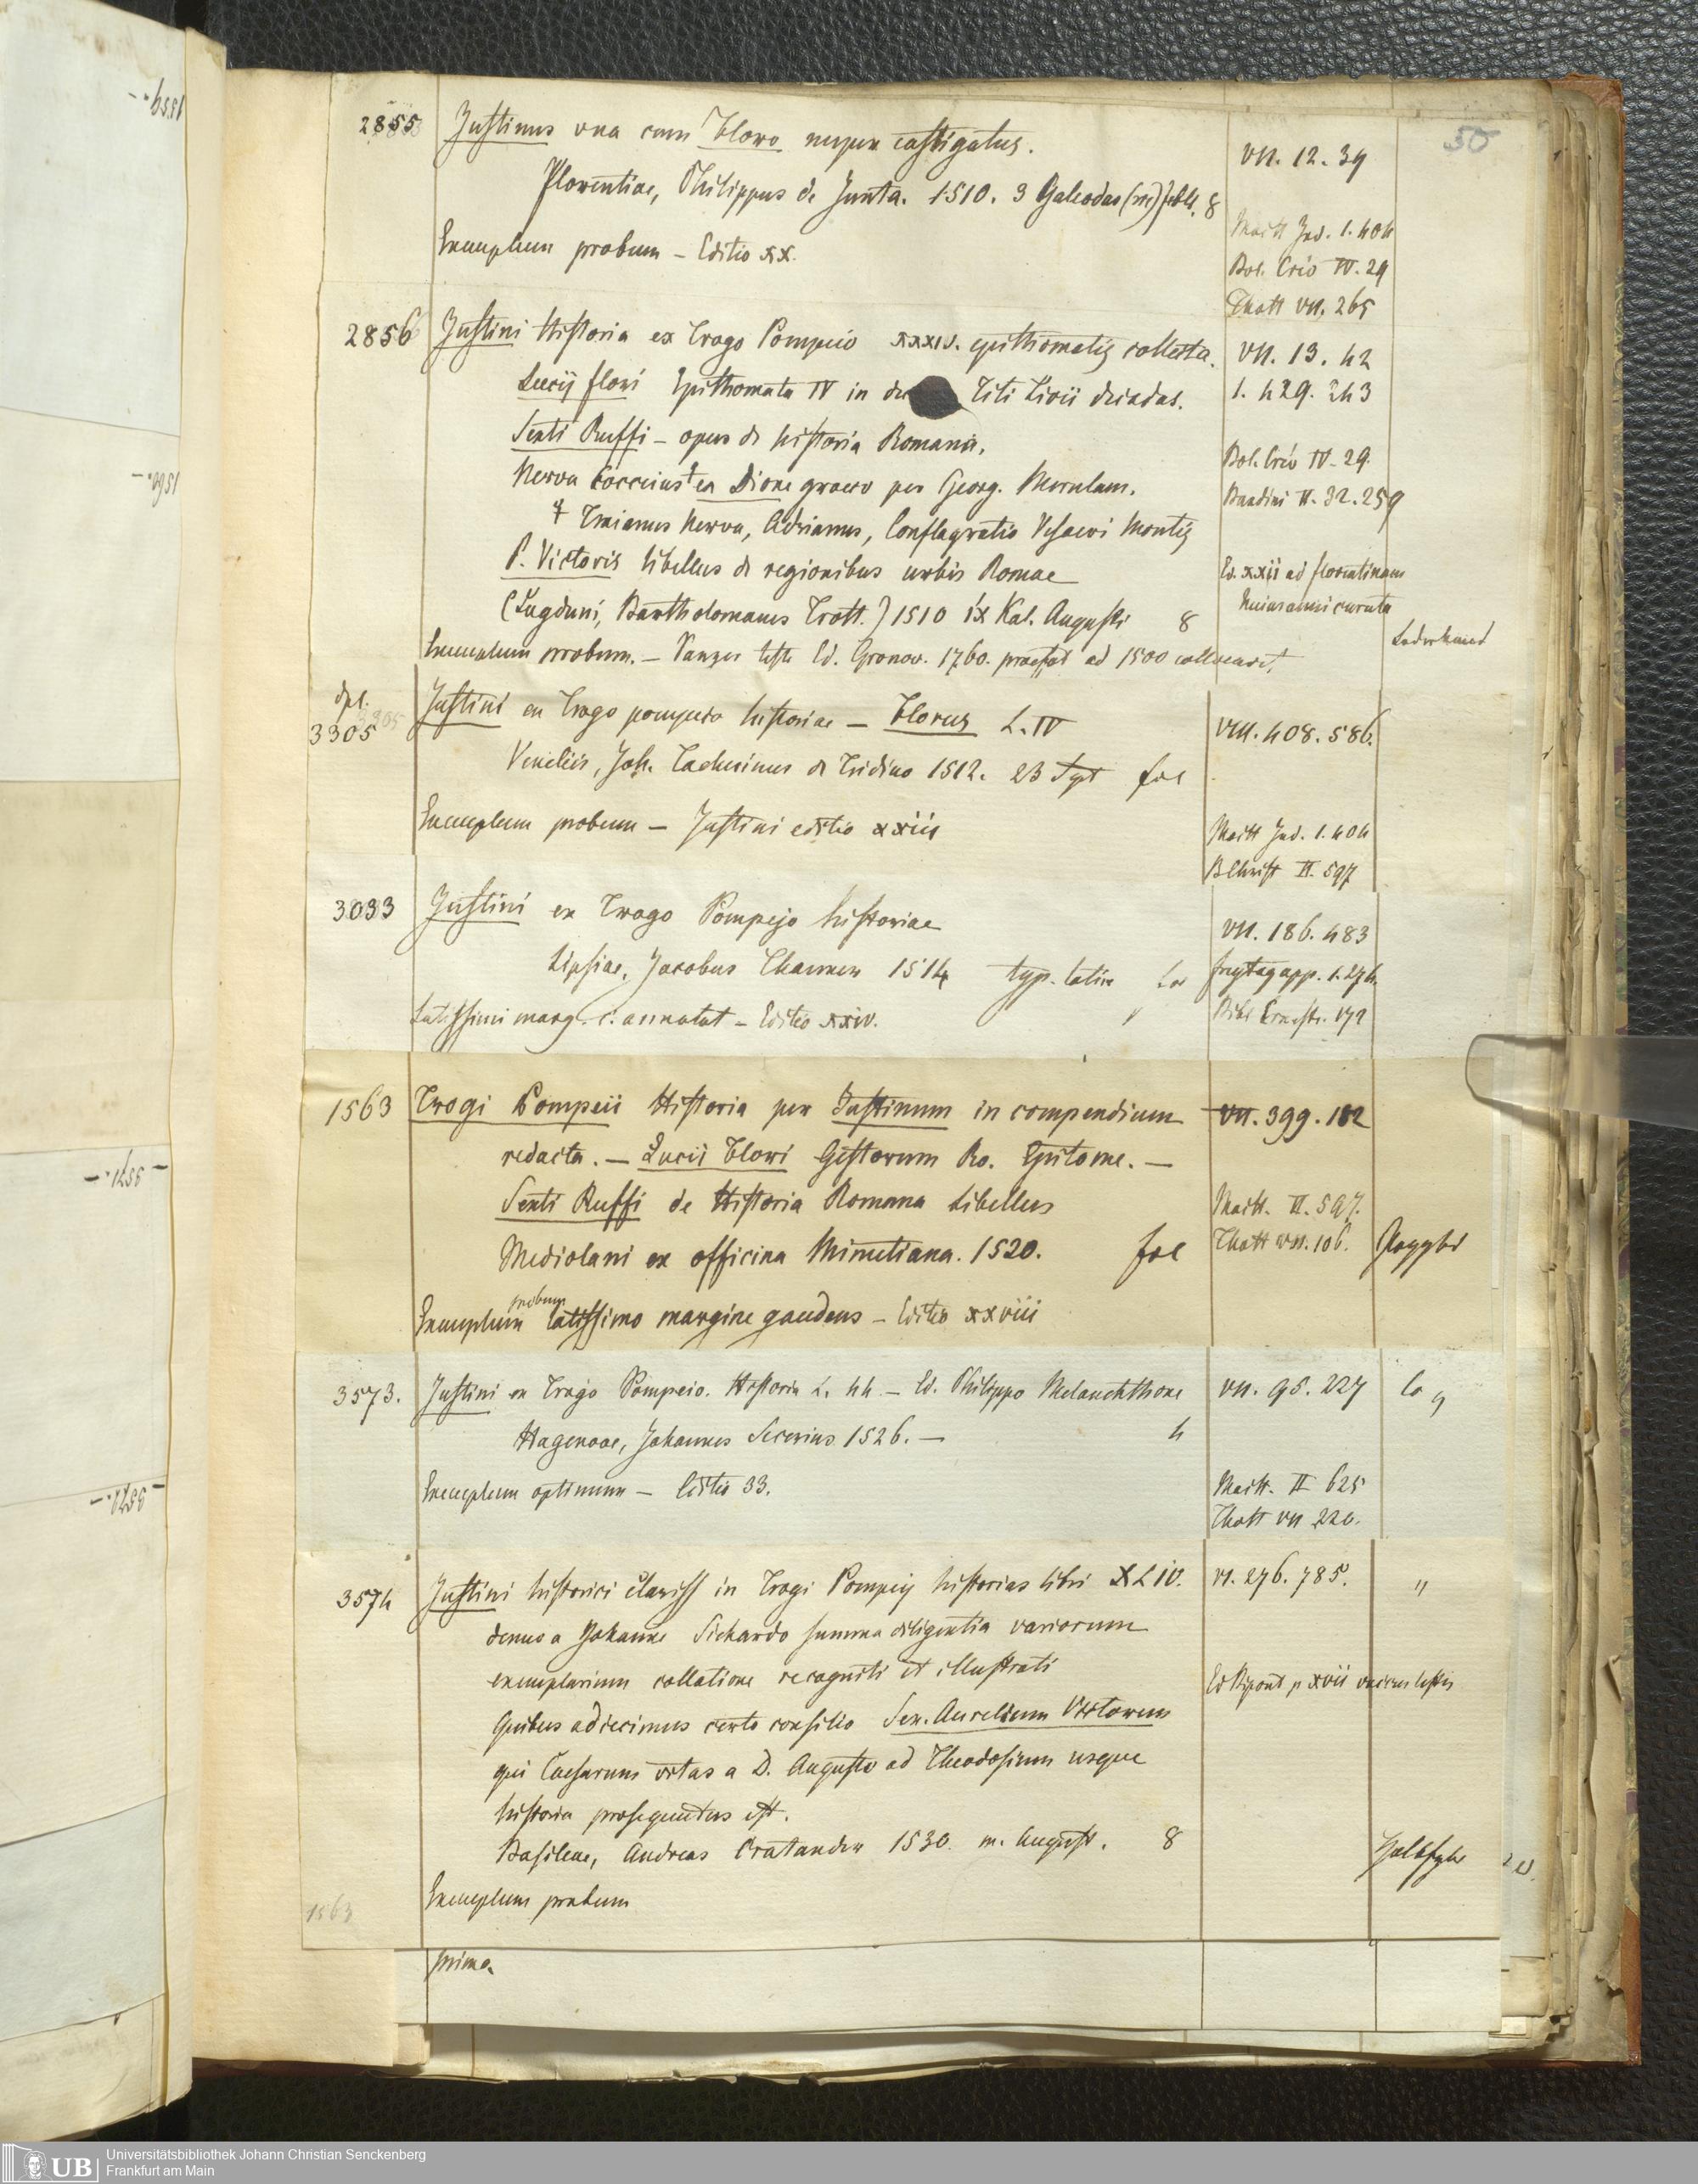 50
2855 Justinus una cum Floro nuper castigatus. VII. 12. 39
Florentiae, Philippus de Junta. 1510. 3 Febr. 8
Maitt Ind. 1. 404
Exemplum probum – Editio xx. IV. 29
Thott VII. 265
2856 Justini Historia ex Trogo Pompeio xxxxiv. epithomatis collecta. VII. 13. 42
Lucij flori Epithomata IV in Titi Livii decadas. 1. 429. 243
Sexti Ruffi – opus de historia Romana.
IV. 29.
Nerva Cocceius ex Dione graeco per Georg. Merulam.
Bandini II. 32. 259
& Traianus Nerva, Adrianus, Conflagratio Vesaevi Montis
P. Victoris libellus de regionibus urbis Romae
Ed. xxii ad florentinam
huius anni curata
(Lugduni, Bartholomaeus Trott.) 1510 ix Kal. Augusti 8
Exemplum probum. – Panzer teste Ed. Gronov. 1760. praefat ad 1500
Lederband
dpl.
3305 Justini ex Trogo pompeio historiae – Florus L. IV VIII. 408. 586.
Venetiis, Joh. Tacuinus de Tridino 1512. 23 Spt fol
Exemplum probum – Justini editio xxiii Maitt Ind. 1. 404
BChrist II. 597
3033 Justini ex Trogo Pompejo historiae VII. 186. 483
Lipsiae, Jacobus Thanner 1514 typ. latin fol freytag app. 1. 274.
Latissimi marg. c. annotat – Editio xxiv.
1563 Trogi Pompeii Historia per Justinum in compendium VII. 399. 182
redacta. – Lucii Flori Gestorum Ro. Epitome. –
Sexti Ruffi de Historia Romana Libellus Maitt. II. 597.
Mediolani ex officina Minutiana. 1520. fol Thott VII. 106. Pappbd
Exemplum probum latissimo margine gaudens – Editio xxviii
3573. Justini ex Trogo Pompeio. Historia L. 44 – Ed. Philippo Melanchthone VII. 95. 227
Hagenoae, Johannes Secerius 1526. – 4
Exemplum optimum – Editio 33. Maitt. II 625
Thott VII 220.
3574 Justini historici clariss in Trogi Pompeij historias libri XLIV. VI. 276. 785. "
denuo a Johanne Sichardo summa diligentia variorum
exemplarium collatione recogniti et illustrati
Ed Bipont p xvii
Quibus adiecimus certo consilio Sex. Aurelium Victorem
qui Caesarum vitas a D. Augusto ad Theodosium usque
historia prosequutus est.
Basileae, Andreas Cratander 1530. m. August. 8 Halbfzbd
Exemplum probum
1563
prima.
1559. –
1560. –
3571. –
3572. –
UB Universitätsbibliothek Johann Christian Senckenberg
Frankfurt am Main